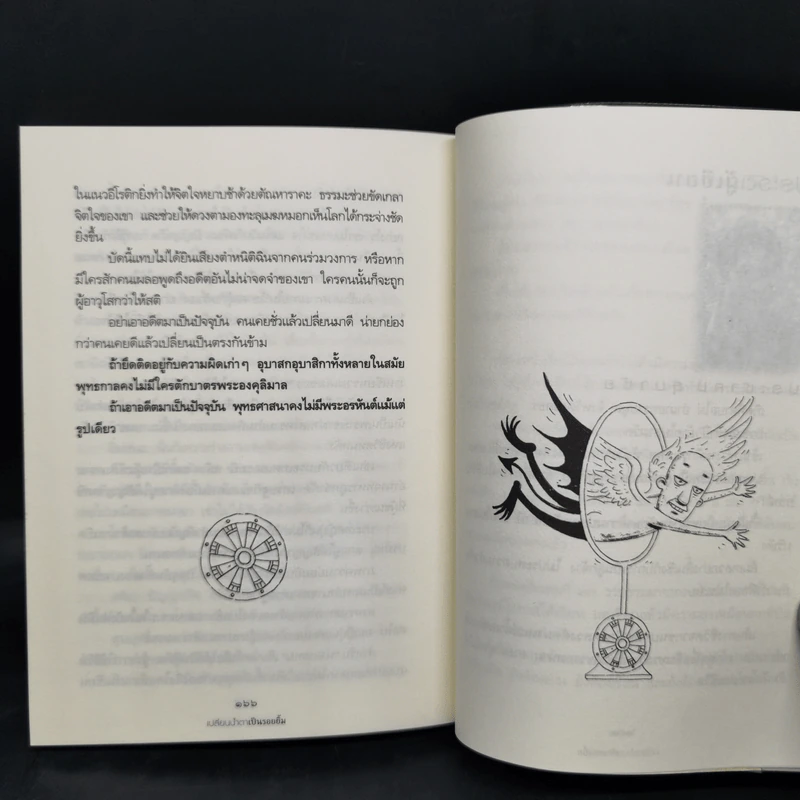 ในแนวอีโรติกยิ่งทำให้จิตใจหยาบช้าด้วยตัณหาราคะ ธรรมะช่วยขัดเกลา
จิตใจของเขา และช่วยให้ดวงตามองทะลุเมฆหมอกเห็นโลกได้กระจ่างชัด
ยิ่งขึ้น
บัดนี้แทบไม่ได้ยินเสียงตำหนิติฉินจากคนร่วมวงการ หรือหาก
มีใครสักคนเผลอพูดถึงอดีตอันไม่น่าจดจำของเขา ใครคนนั้นก็จะถูก
ผู้อาวุโสกว่าให้สติ
อย่าเอาอดีตมาเป็นปัจจุบัน คนเคยชั่วแล้วเปลี่ยนมาดี น่ายกย่อง
กว่าคนเคยดีแล้วเปลี่ยนเป็นตรงกันข้าม
ถ้ายึดติดอยู่กับความผิดเก่าๆ อุบาสกอุบาสิกาทั้งหลายในสมัย
พุทธกาลคงไม่มีใครตักบาตรพระองคุลิมาล
ถ้าเอาอดีตมาเป็นปัจจุบัน พุทธศาสนาคงไม่มีพระอรหันต์แม้แต่
รูปเดียว
๑๖๖
เปลี่ยนน้ำตาเป็นรอยยิ้ม